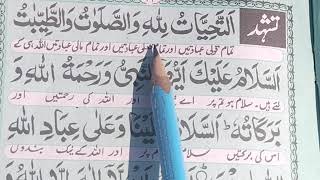 تشهد
اَلتَّحِيَّاتُ لِلّٰهِ وَالصَّلَوٰتُ وَالطَّيِّبٰتُ
تمام قولی عبادتیں اور تمام عبادتیں اور تمام مالی عبادتیں اللہ ہی کے
اَلسَّلَامُ عَلَيْكَ النَّبِيُّ وَرَحْمَةُ اللّٰهِ وَ
لئے ہیں۔ سلام ہو تم پر اے اور اللہ کی رحمتیں اور
بَرَكَاتُهٗ اَلسَّلَامُ عَلَيْنَا وَعَلٰى عِبَادِ اللّٰهِ
اس کی برکتیں سلام پر اور اللہ کے نیک بندوں